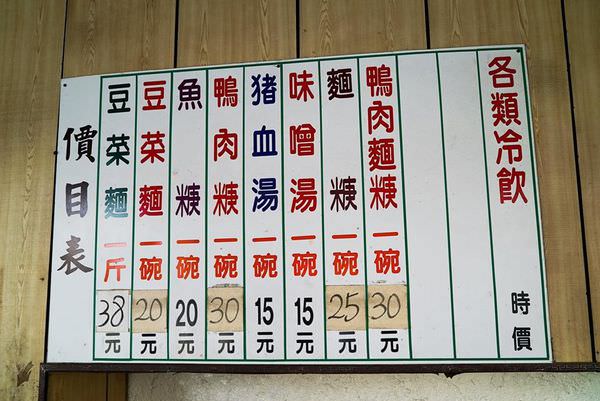 價目表
豆菜麵一斤38元
豆菜麵一碗20元
魚糠一碗20元
鴨肉糠一碗30元
豬血湯一碗15元
味噌湯一碗15元
麵糠一碗25元
鴨肉麵糠一碗30元
各類冷飲時價